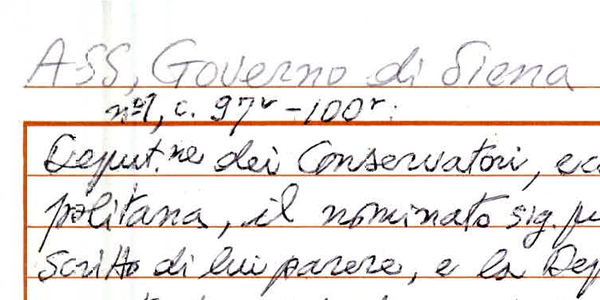 ASS, Governo di Siena
n°1, c. 97v - 100r:
Deput.ne dei Conservatori, ed
politana, il nominato sig. pu
scritto di lui parere, e la Dep